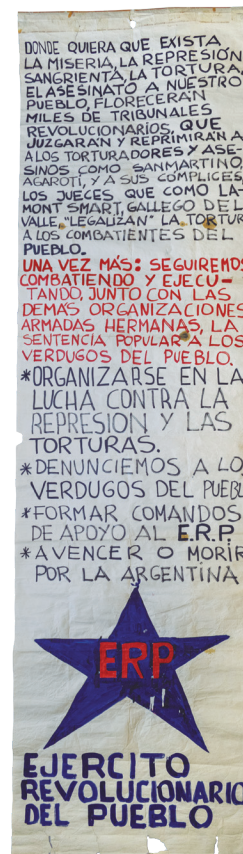 DONDE QUIERA QUE EXISTA
LA MISERIA, LA REPRESIÓN
SANGRIENTA, LA TORTURA,
EL ASESINATO A NUESTRO
PUEBLO, FLORECERÁN
MILES DE TRIBUNALES
REVOLUCIONARIOS, QUE
JUZGARÁN Y REPRIMIRÁN A
A LOS TORTURADORES Y ASE-
SINOS COMO SANMARTINO,
AGAROTI, Y A SUS COMPLICES,
LOS JUECES QUE COMO LA-
MONT SMART, GALLEGO DEL
VALLE, "LEGALIZAN" LA TORTUR
A LOS COMBATIENTES DEL
PUEBLO.
UNA VEZ MÁS: SEGUIREMOS
COMBATIENDO Y EJECU-
TANDO, JUNTO CON LAS
DEMÁS ORGANIZACIONES
ARMADAS HERMANAS, LA
SENTENCIA POPULAR A LOS
VERDUGOS DEL PUEBLO.
*ORGANIZARSE EN LA
LUCHA CONTRA LA
REPRESION Y LAS
TORTURAS.
*DENUNCIEMOS A LO
VERDUGOS DEL PUEBL
*FORMAR COMANDOS
DE APOYO AL E.R.P.
*A VENCER O MORIR
POR LA ARGENTINA
ERP
EJERCITO
REVOLUCIONARIO
DEL PUEBLO